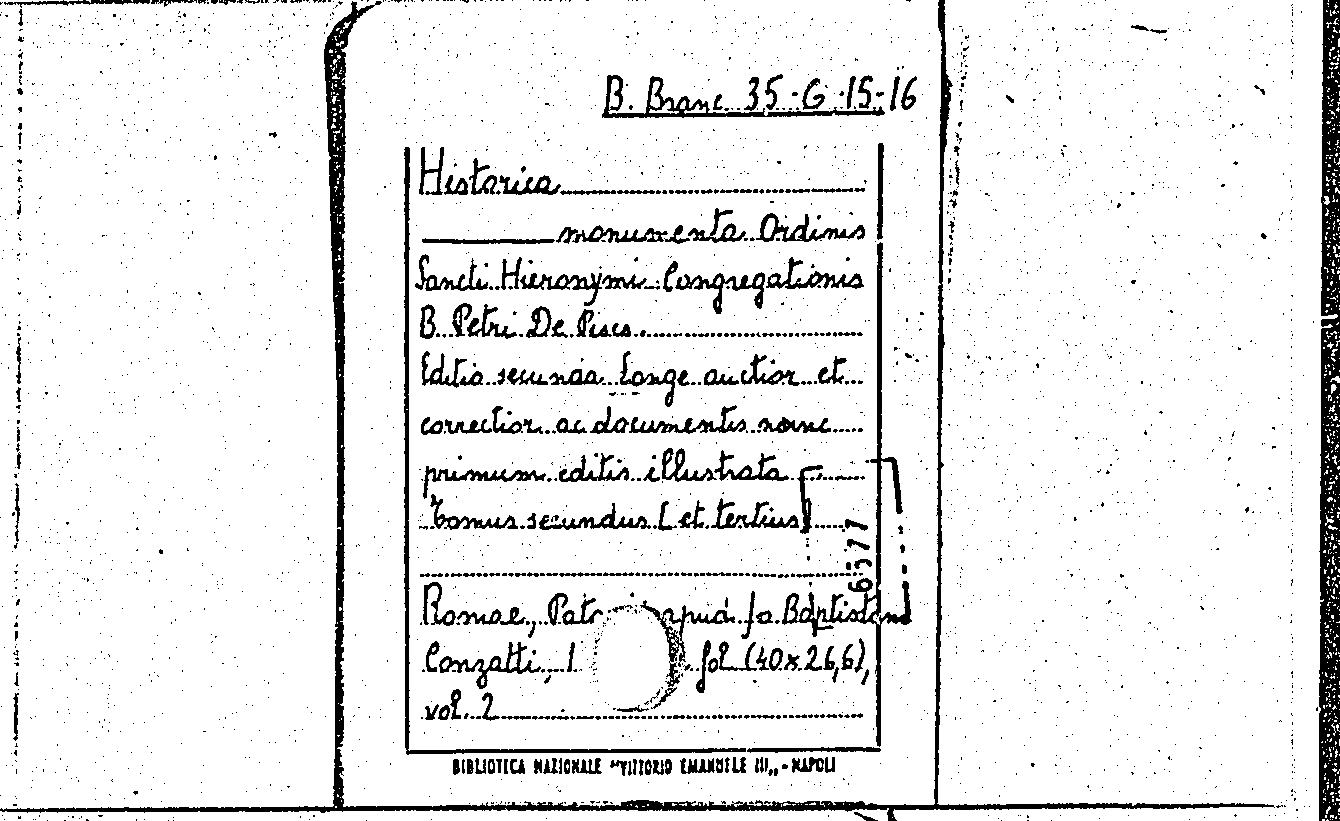 B. Branc. 35-G-15-16
Historica
monumenta Ordinis
Sancti Hieronymi Congregationis
B. Petri De Pisis.
Editio secunda longe auctior et
correctior ac documentis nunc
primum editis illustrata
Tomus secundus [et tertius]
6577
Romae, apud Jo Baptistam
Conzatti, 1 fol (40x26,6),
vol. 2
BIBLIOTECA NAZIONALE "VITTORIO EMANUELE III„ - NAPOLI